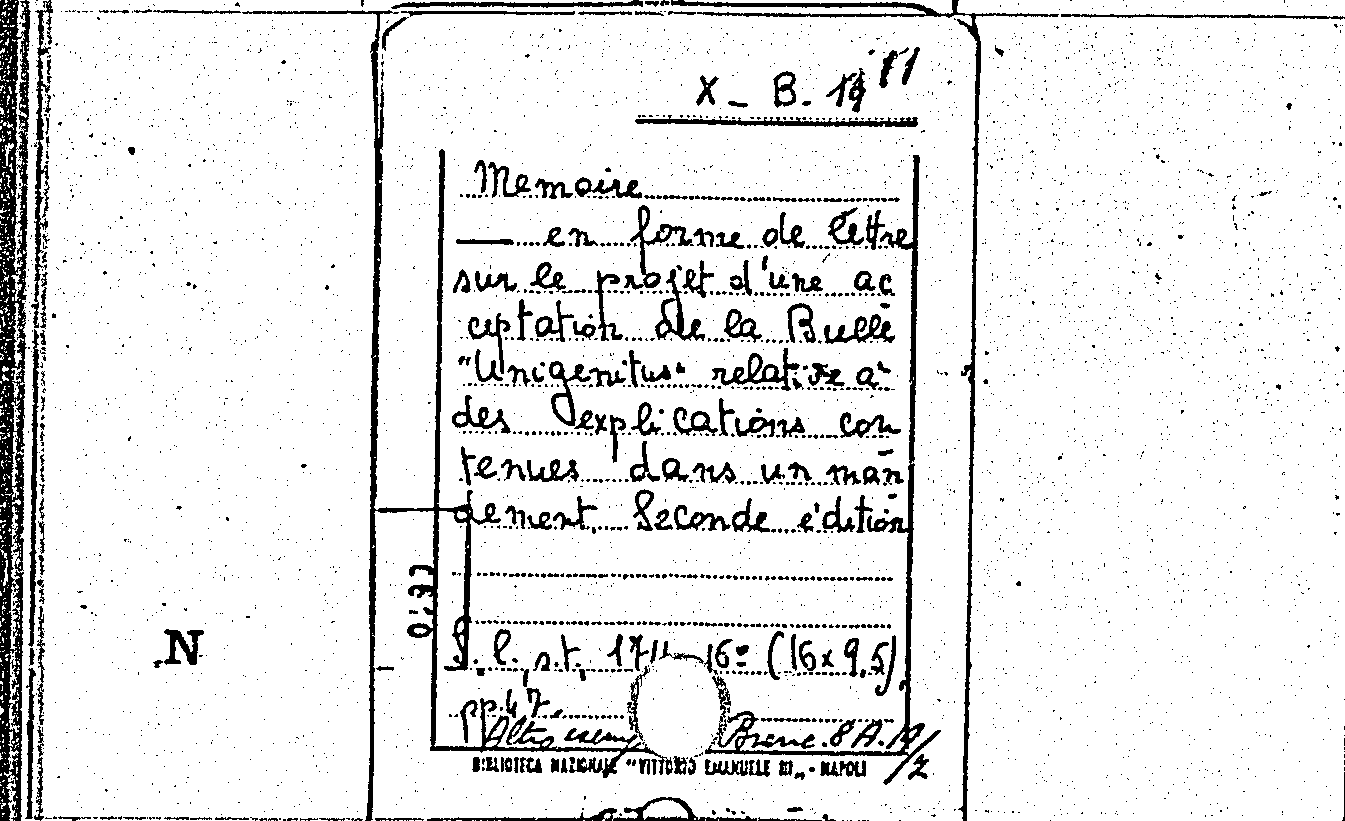 X - B. 19 11
Memoire
— en forme de lettre
sur le projet d'une ac
ceptation de la Bulle
"Unigenitus" relative a'
des explications con
tenues dans un man
dement. Seconde e'dition
0,97
N
S. l., s.t., 16º (16x9,5),
pp. 47.
Altro Branc. 8 A. 19/2
BIBLIOTECA NAZIONALE "VITTORIO EMANUELE III" - NAPOLI